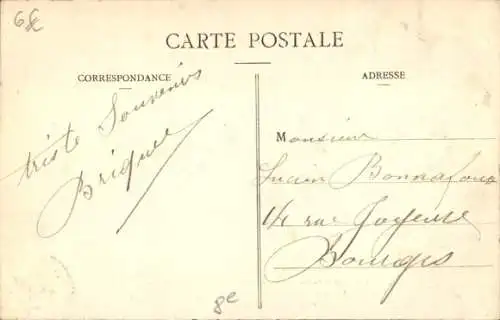 6€
CARTE POSTALE
CORRESPONDANCE
ADRESSE
triste Souvenirs
Brique
Monsieur
Lucien Bonnafoux
14 rue Joyeuse
Bourges
8e